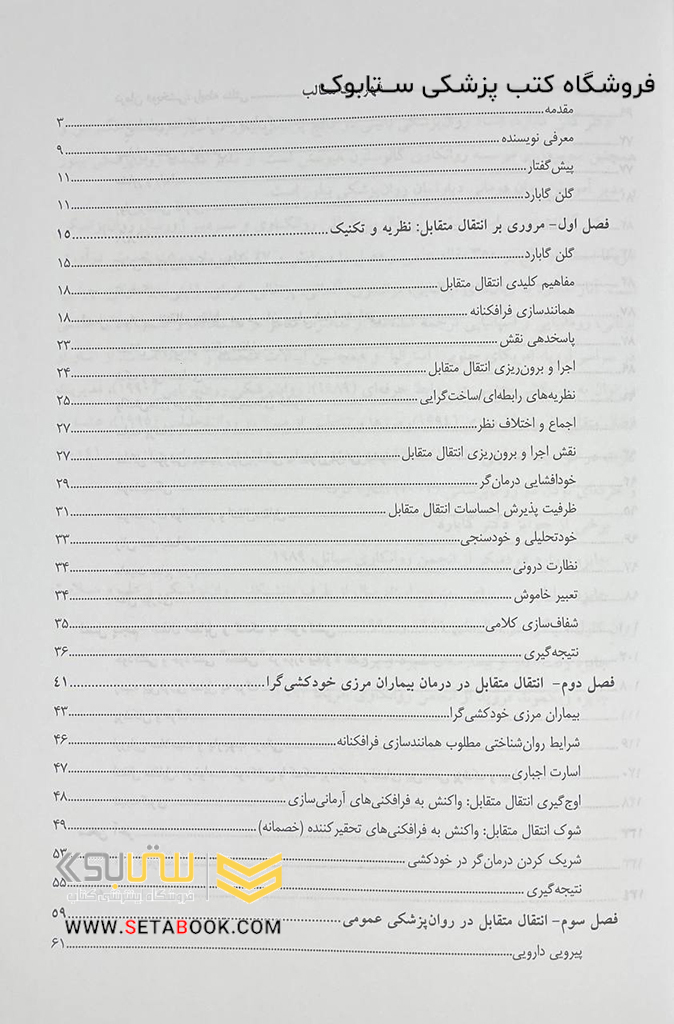 فروشگاه کتب پزشکی ستابوک
مقدمه ۳
معرفی نویسنده ۹
پیش‌گفتار ۱۱
گلن گابارد ۱۱
فصل اول- مروری بر انتقال متقابل: نظریه و تکنیک ۱۵
گلن گابارد ۱۵
مفاهیم کلیدی انتقال متقابل ۱۸
همانندسازی فرافکنانه ۱۸
پاسخدهی نقش ۲۳
اجرا و برون‌ریزی انتقال متقابل ۲۴
نظریه‌های رابطه‌ای/ساخت‌گرایی ۲۵
اجماع و اختلاف نظر ۲۷
نقش اجرا و برون‌ریزی انتقال متقابل ۲۷
خودافشایی درمان‌گر ۲۹
ظرفیت پذیرش احساسات انتقال متقابل ۳۱
خودتحلیلی و خودسنجی ۳۳
نظارت درونی ۳۴
تعبیر خاموش ۳۴
شفاف‌سازی کلامی ۳۵
نتیجه‌گیری ۳۶
فصل دوم- انتقال متقابل در درمان بیماران مرزی خودکشی‌گرا ۴۱
بیماران مرزی خودکشی‌گرا ۴۳
شرایط روان‌شناختی مطلوب همانندسازی فرافکنانه ۴۶
اسارت اجباری ۴۷
اوج‌گیری انتقال متقابل: واکنش به فرافکنی‌های آرمانی‌سازی ۴۸
شوک انتقال متقابل: واکنش به فرافکنی‌های تحقیرکننده (خصمانه) ۴۹
شریک کردن درمان‌گر در خودکشی ۵۳
نتیجه‌گیری ۵۵
فصل سوم- انتقال متقابل در روان‌پزشکی عمومی ۵۹
پیرویی دارویی ۶۱
ستابوک
فروشگاه اینترنتی کتاب
WWW.SETABOOK.COM